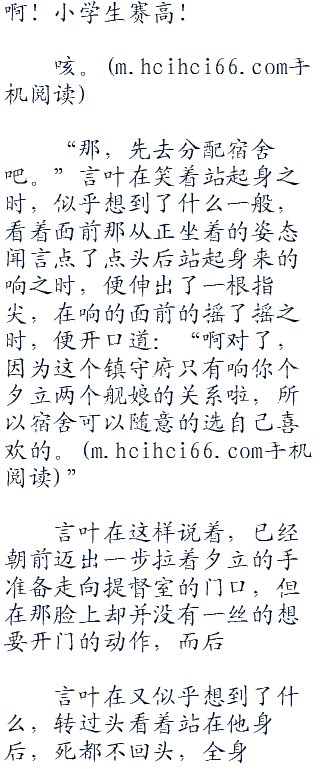 啊！小学生赛高！
咳。(m.hcihci66.com手
机阅读)
“那，先去分配宿舍
吧。”言叶在笑着站起身之
时，似乎想到了什么一般，
看着面前那从正坐着的姿态
闻言点了点头后站起身来的
响之时，便伸出了一根指
尖，在响的面前的摇了摇之
时，便开口道：“啊对了，
因为这个镇守府只有响你个
夕立两个舰娘的关系啦，所
以宿舍可以随意的选自己喜
欢的。(m.hcihci66.com手机
阅读)”
言叶在这样说着，已经
朝前迈出一步拉着夕立的手
准备走向提督室的门口，但
在那脸上却并没有一丝的想
要开门的动作，而后
言叶在又似乎想到了什
么，转过头看着站在他身
后，死都不回头，全身